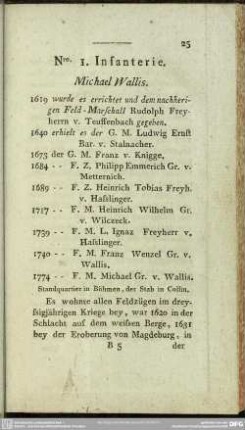 25
Nro. 1. Infanterie.
Michael Wallis.
1619 wurde es errichtet und dem nachheri-
gen Feld-Marschall Rudolph Frey-
herrn v. Teuffenbach gegeben.
1640 erhielt es der G. M. Ludwig Ernst
Bar. v. Stalnacher.
1673 der G. M. Franz v. Knigge,
1684 - - F. Z. Philipp Emmerich Gr. v.
Metternich.
1689 - - F. Z. Heinrich Tobias Freyh.
v. Hasslinger.
1717 - - F. M. Heinrich Wilhelm Gr.
v. Wilczeck.
1739 - - F. M. L. Ignaz Freyherr v.
Hasslinger.
1740 - - F. M. Franz Wenzel Gr. v.
Wallis.
1774 - - F. M. Michael Gr. v. Wallis.
Standquartier in Böhmen, der Stab in Collin.
Es wohnte allen Feldzügen im drey-
ssigjährigen Kriege bey, war 1620 in der
Schlacht auf dem weissen Berge, 1631
bey der Eroberung von Magdeburg, in
B 5 der